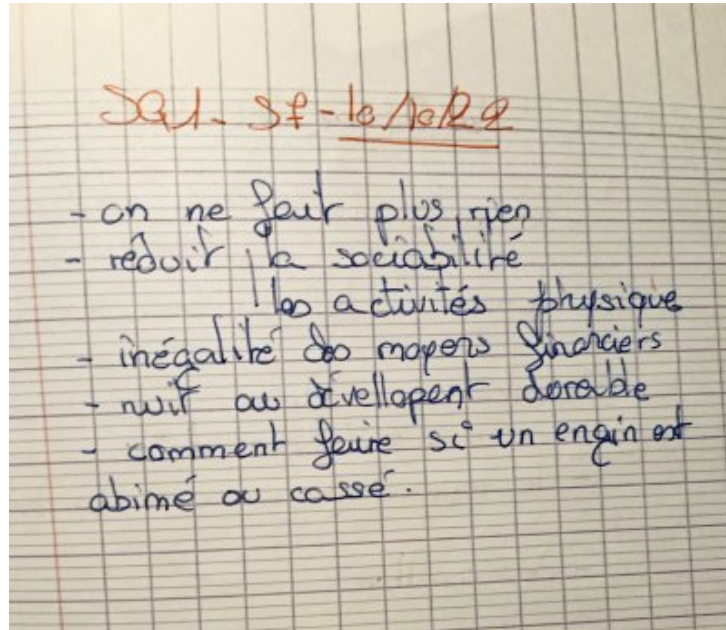 SQ1- Sf-
- on ne fait plus rien
- réduit la sociabilité
les activités physique
- inégalité des moyens financiers
- nuit au dévellopent dorable
- comment faire si un engin est
abimé ou cassé.